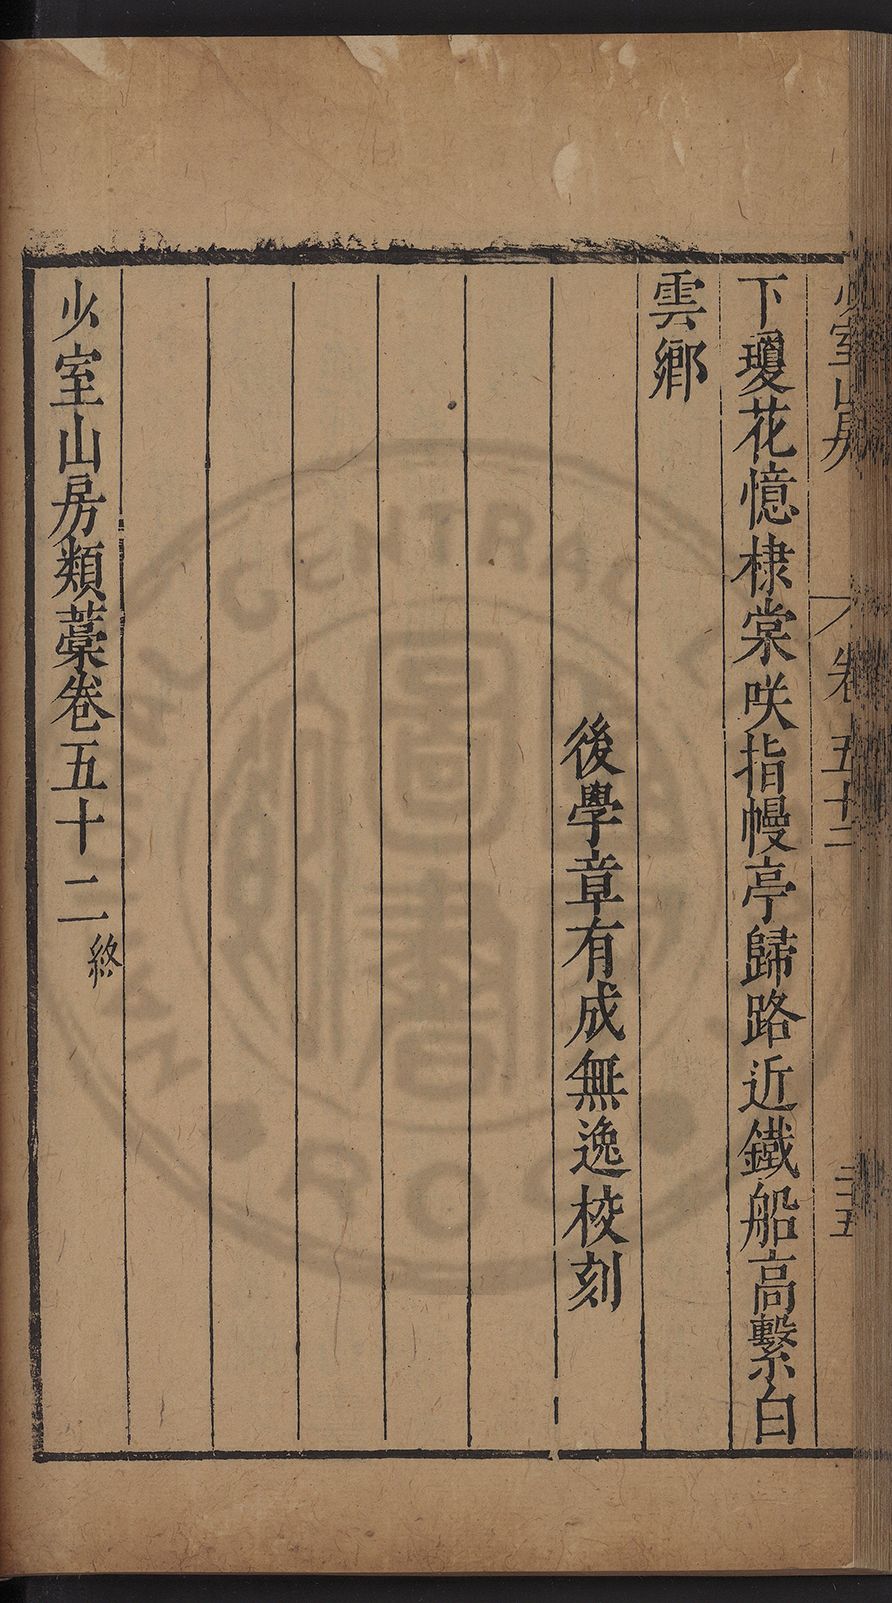 少室山房　卷五十二　二十五
下瓊花憶棣棠咲指幔亭歸路近鐵船高繫白
雲鄉
後學章有成無逸校刻
少室山房類藁卷五十二終